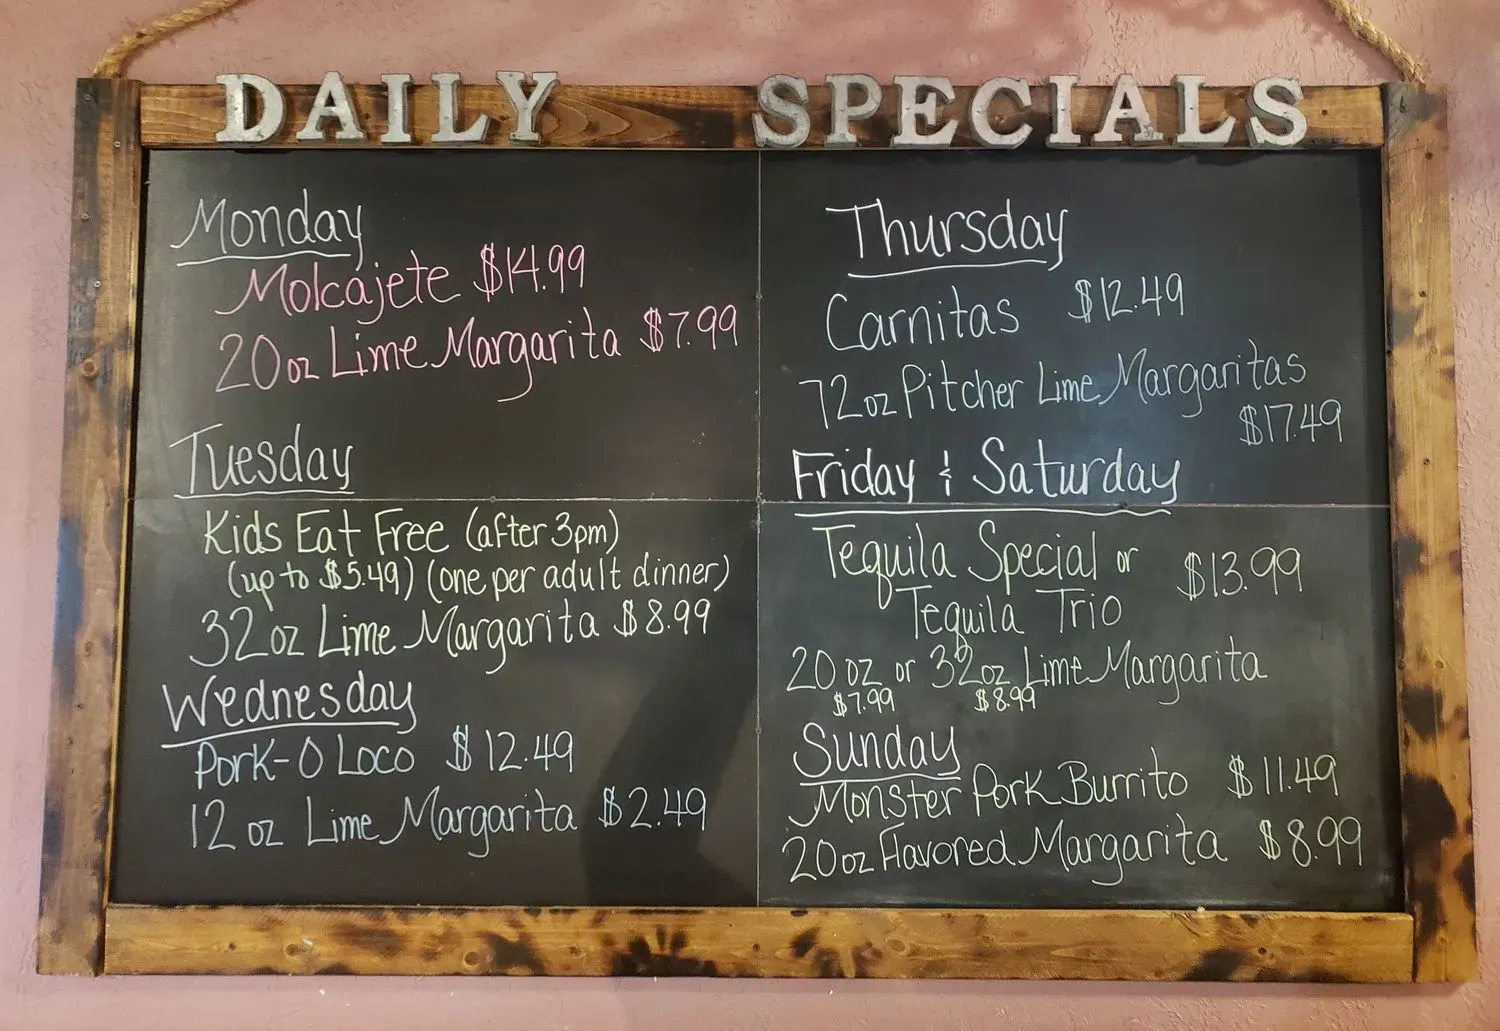 DAILY SPECIALS
Monday
Molcajete $14.99
20oz Lime Margarita $7.99
Tuesday
Kids Eat Free (after 3pm)
(up to $5.49) (one per adult dinner)
32oz Lime Margarita $8.99
Wednesday
Pork-O Loco $12.49
12 oz Lime Margarita $2.49
Thursday
Carnitas $12.49
72oz Pitcher Lime Margaritas
$17.49
Friday & Saturday
Tequila Special or $13.99
Tequila Trio
20 oz or 32oz Lime Margarita
$7.99 $8.99
Sunday
Monster Pork Burrito $11.49
20oz Flavored Margarita $8.99